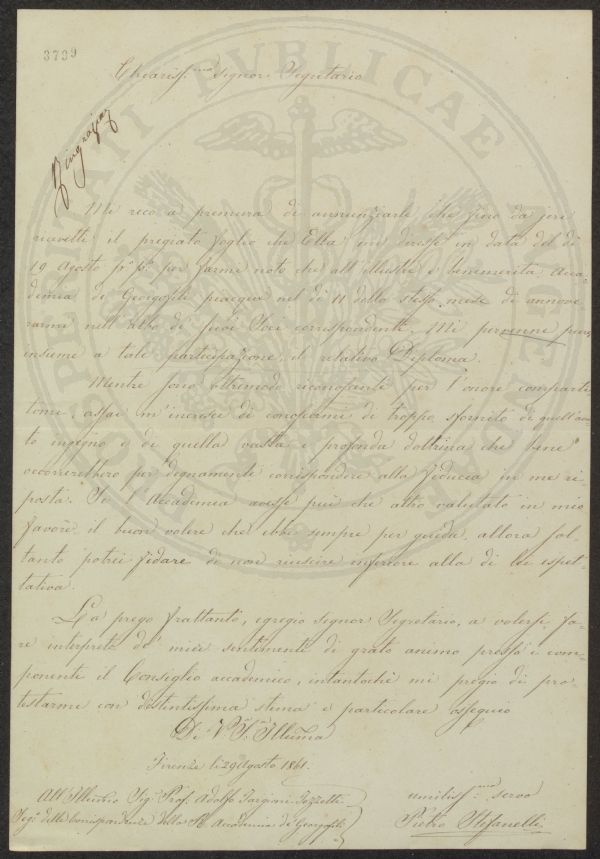 3739
Chiariss.mo Signor Segretario
Ringrazia
Mi reco a premura di annunziarle che fino da jeri
ricevetti il pregiato foglio che Ella mi diresse in data del dì
19 Agosto pº pº per farmi noto che all'illustre e benemerita Acca-
demia de' Georgofili piacque nel dì 11 dello stesso mese di annove-
rarmi nell'albo de' suoi Soci corrispondenti. Mi pervenne pure,
insieme a tale partecipazione, il relativo Diploma.
Mentre sono oltremodo riconoscente per l'onore comparti-
tomi, assai m'incresce di conoscermi di troppo sfornito di quell'
ingegno e di quella vasta e profonda dottrina che bene
occorrerebbero per degnamente corrispondere alla fiducia in me ri-
posta. Se l'Accademia avesse più che altro valutato in mio
favore il buon volere che ebbi sempre per guida, allora sol-
tanto potrei fidare di non riuscire inferiore alla di lei espet-
tativa.
La prego frattanto, egregio Signor Segretario, a volersi fa-
re interprete de' miei sentimenti di grato animo presso i com-
ponente il Consiglio accademico, intantochè mi pregio di pro-
testarmi con distintissima stima e particolare ossequio
Di V.S. Illma
Firenze li 29 Agosto 1861.
All'Illustre Sig.r Prof. Adolfo Targioni Tozzetti
Seg.o delle Corrispondenze della R. Accademia de' Georgofili
umiliss.mo servo
Pietro Stefanelli
PROSPERITATI PUBLICAE AUGENDAE